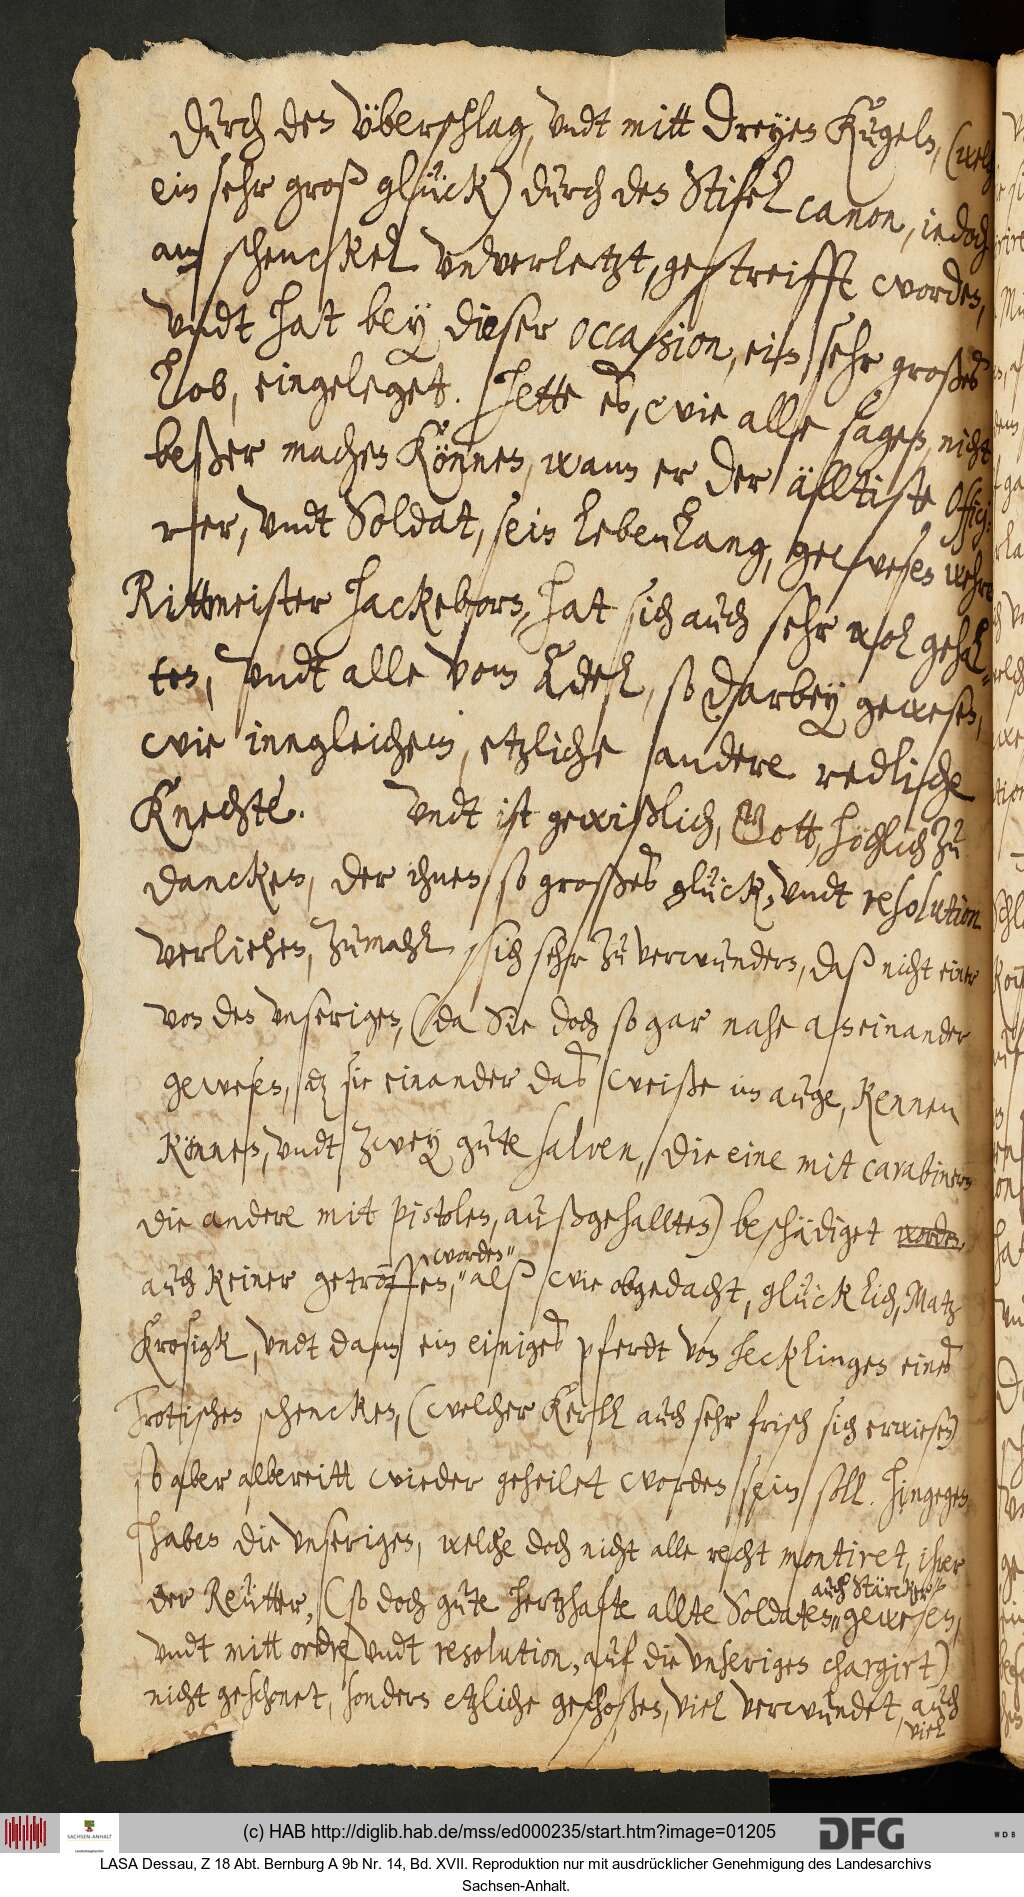 durch den vberschlag, vndt mitt dreyen Kugeln, (welches
ein sehr groß glück) durch den Stifel canon, iedoch
am schenckel vnverletzt, gestreifft worden,
vndt hat bey dieser occasion, ein sehr großes
Lob, eingeleget. Hette es, wie alle sagen, nicht
beßer machen können, wann er der älltiste Offici:
rer, vndt Soldat, sein Lebenlang, gewesen wehre
Rittmeister Hackeborn, hat sich auch sehr wol gehal-
ten, vndt alle vom Adel, so darbey gewesen,
wie inngleichem, etzliche andere redliche
Knechte. Vndt ist gewißlich, Gott, höchlich zu
dancken, der ihnen so großes glück, vndt resolution
verliehen, zumahl sich sehr zu verwundern, daß nicht einer
von den vnserigen, (da Sie doch so gar nahe aneinander
gewesen, daz sie einander das weiße im auge, kennen
können, vndt zwey gute salven, die eine mit carabinern
die andere mit pistolen, außgehallten) beschädiget worden
auch keiner getroffen, worden" alß wie obgedacht, glücklich, Matz
Krosigk, vndt dann ein einiges pferdt von Hecklingen eines
Trotischen schencken, (welcher Kerll auch sehr frisch sich erwiesen)
so aber albereitt wieder geheilet worden sein soll. Hingegen
haben die vnserigen, welche doch nicht alle recht montiret, ihrer
der Reütter, (so doch gute hertzhafte allte Soldaten, auch stärcker" gewesen,
vndt mitt ordre vndt resolution, auf die vnserigen chargirt)
nicht geschonet, sondern etzliche geschoßen, viel verwundet, auch
viel
(c) HAB http://diglib.hab.de/mss/ed000235/start.htm?image=01205
DFG
WDB
SACHSEN-ANHALT
LASA Dessau, Z 18 Abt. Bernburg A 9b Nr. 14, Bd. XVII. Reproduktion nur mit ausdrücklicher Genehmigung des Landesarchivs
Sachsen-Anhalt.